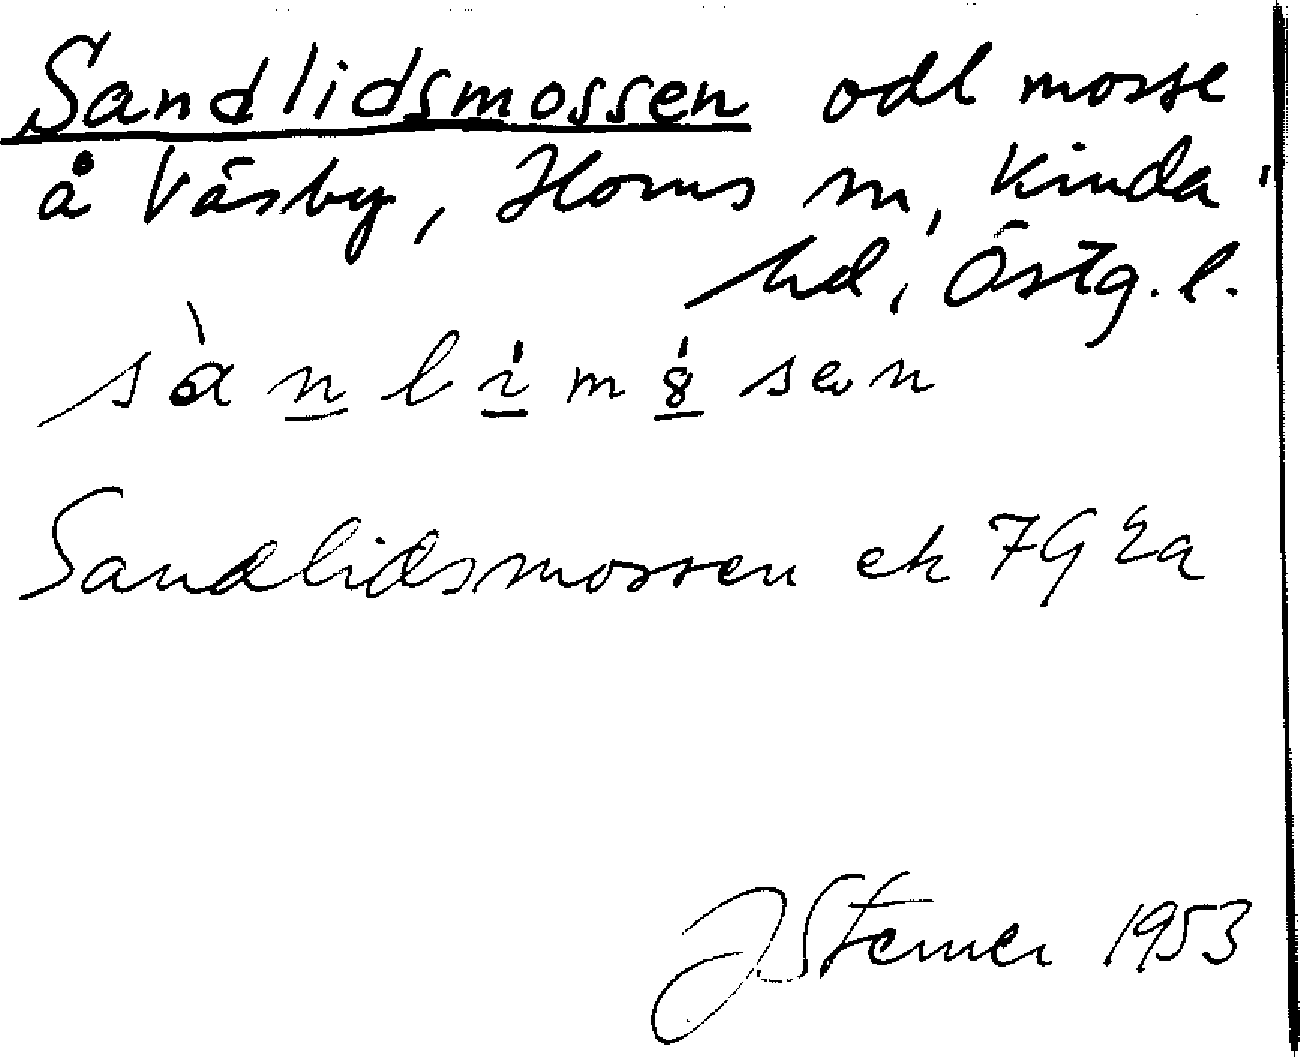 Sandlidsmossen odl mosse
å Väsby, Horns sn, Kinda
hd, Östg.l.
Sandlidsmossen ek 7G 2a
1953